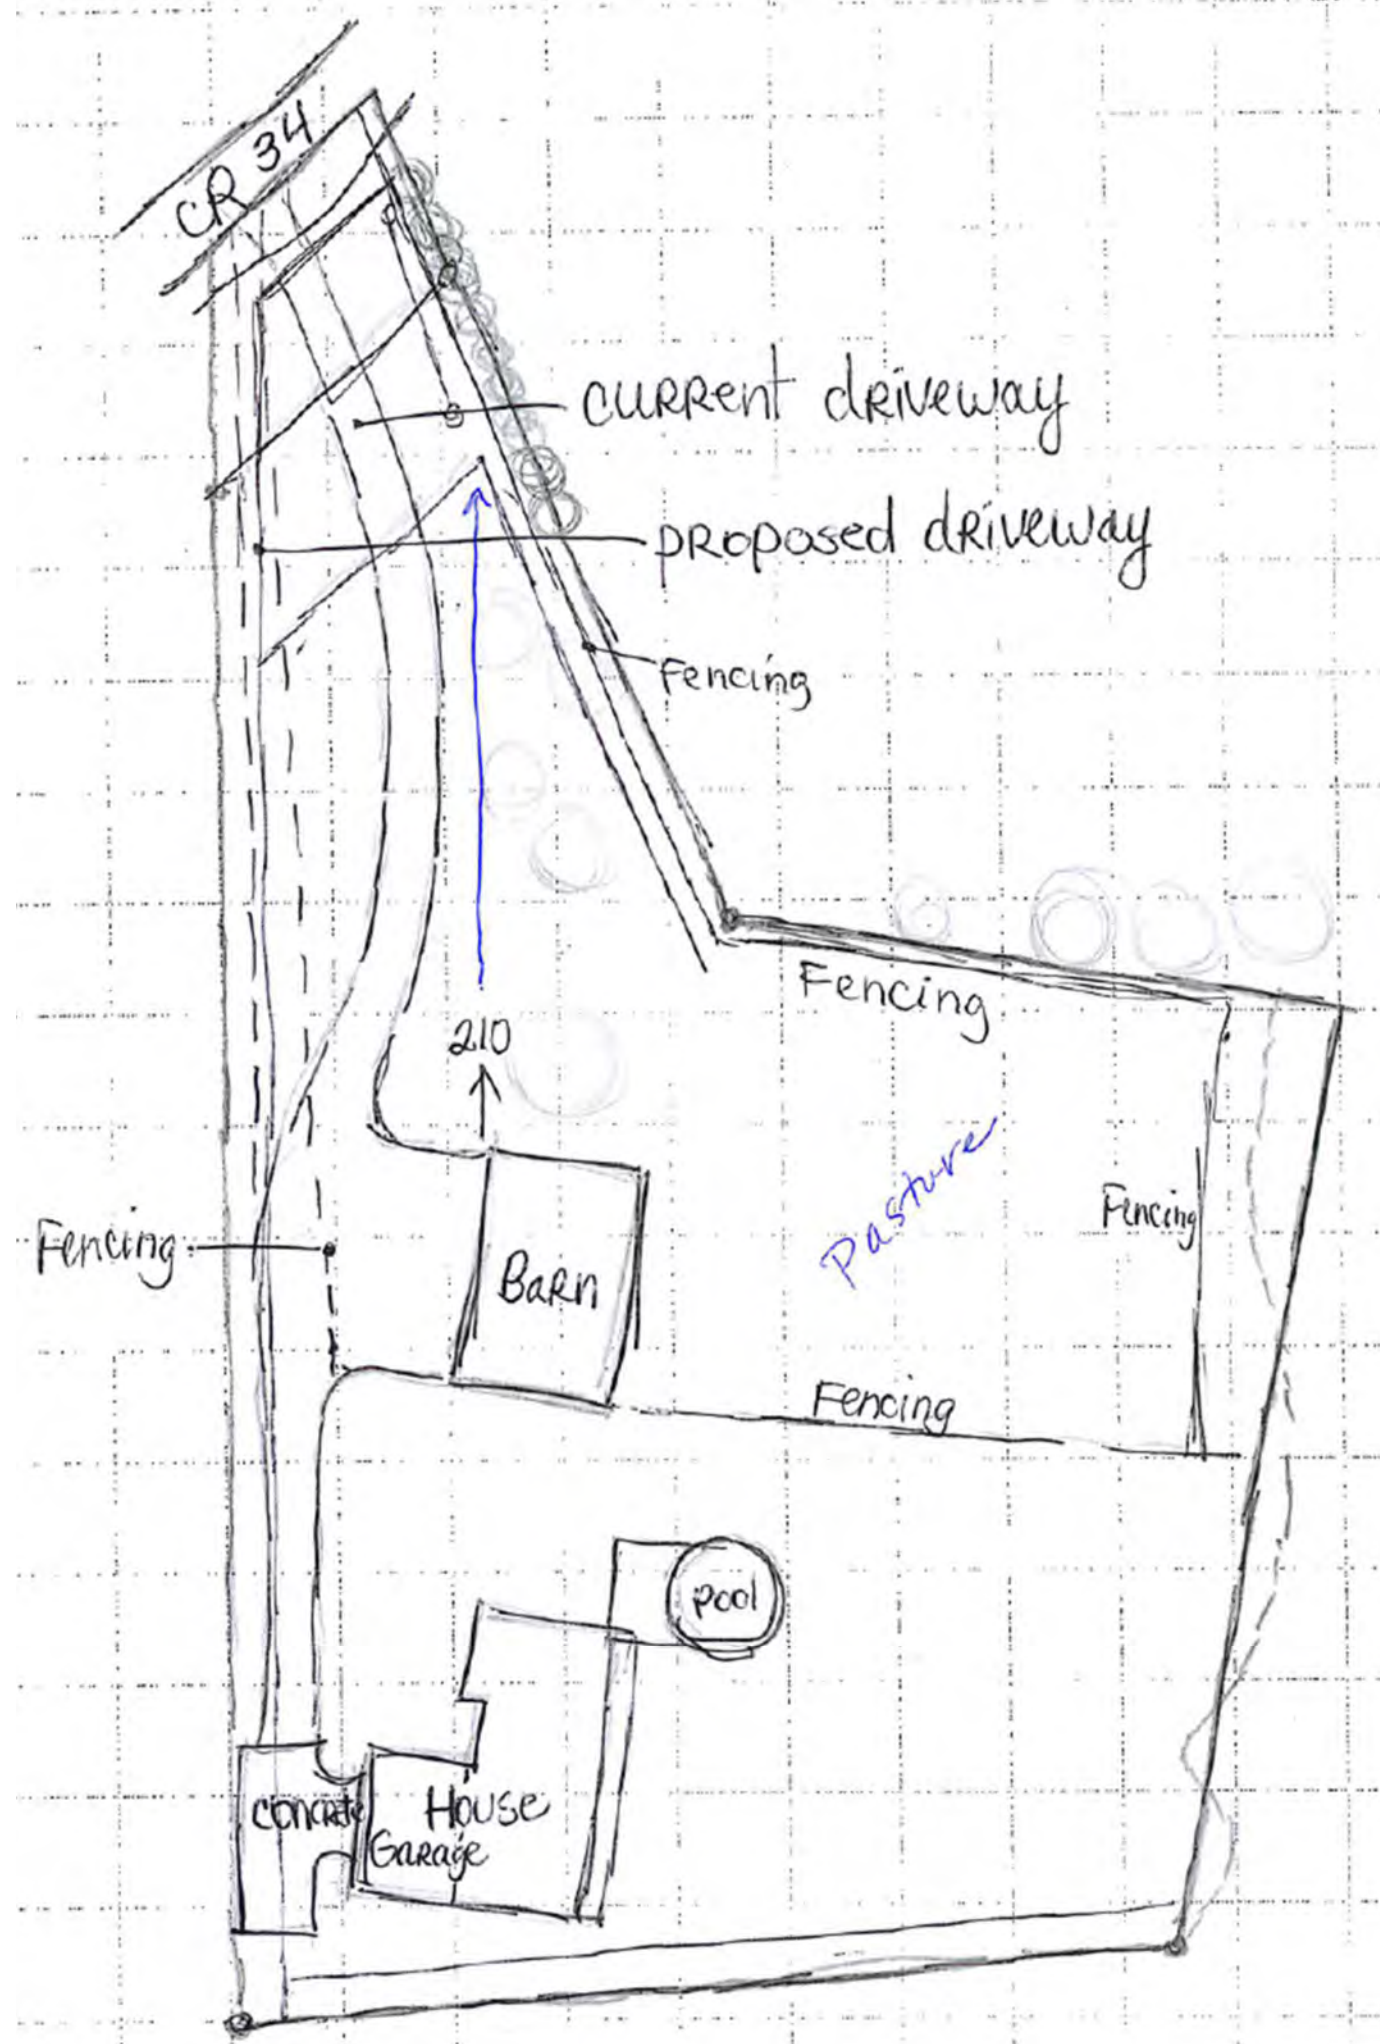 CR 34
CURRent dRiveway
PROposed dRiveway
Fencing
Fencing
210
Pasture
Fencing
Fencing
BaRn
Fencing
pool
CONCRete
House
GaRage